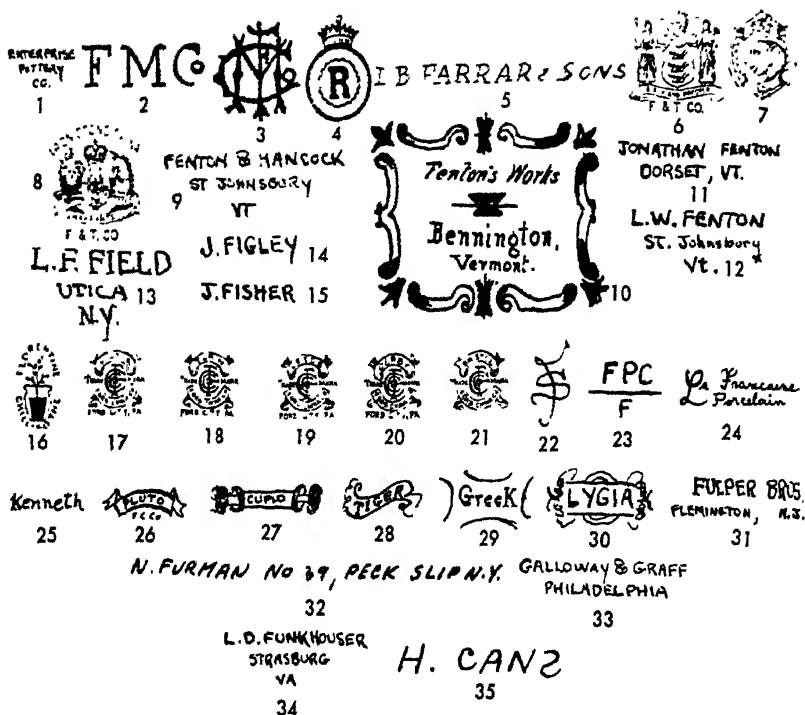 ENTERPRISE
POTTERY
CO.
1
F M Co
2
3
R
4
I B FARRAR & SONS
5
F & T CO.
6
7
8
F & T. CO
FENTON & HANCOCK
9 ST JOHNSBURY
VT
Fenton's Works
Bennington,
Vermont.
10
JONATHAN FENTON
DORSET, VT.
11
L.W. FENTON
ST. Johnsbury
Vt. 12
L.F. FIELD
UTICA 13
N.Y.
J. FIGLEY 14
J. FISHER 15
16
17
18
19
20
21
22
FPC
F
23
Porcelain
24
Kenneth
25
PLUTO
26
CUPID
27
TIGER
28
Greek
29
LYGIA
30
FULPER BROS.
FLEMINGTON, N.J.
31
N. FURMAN NO 39, PECK SLIP N.Y.
32
GALLOWAY & GRAFF
PHILADELPHIA
33
L.D. FUNKHOUSER
STRASBURG
VA
34
H. CANS
35